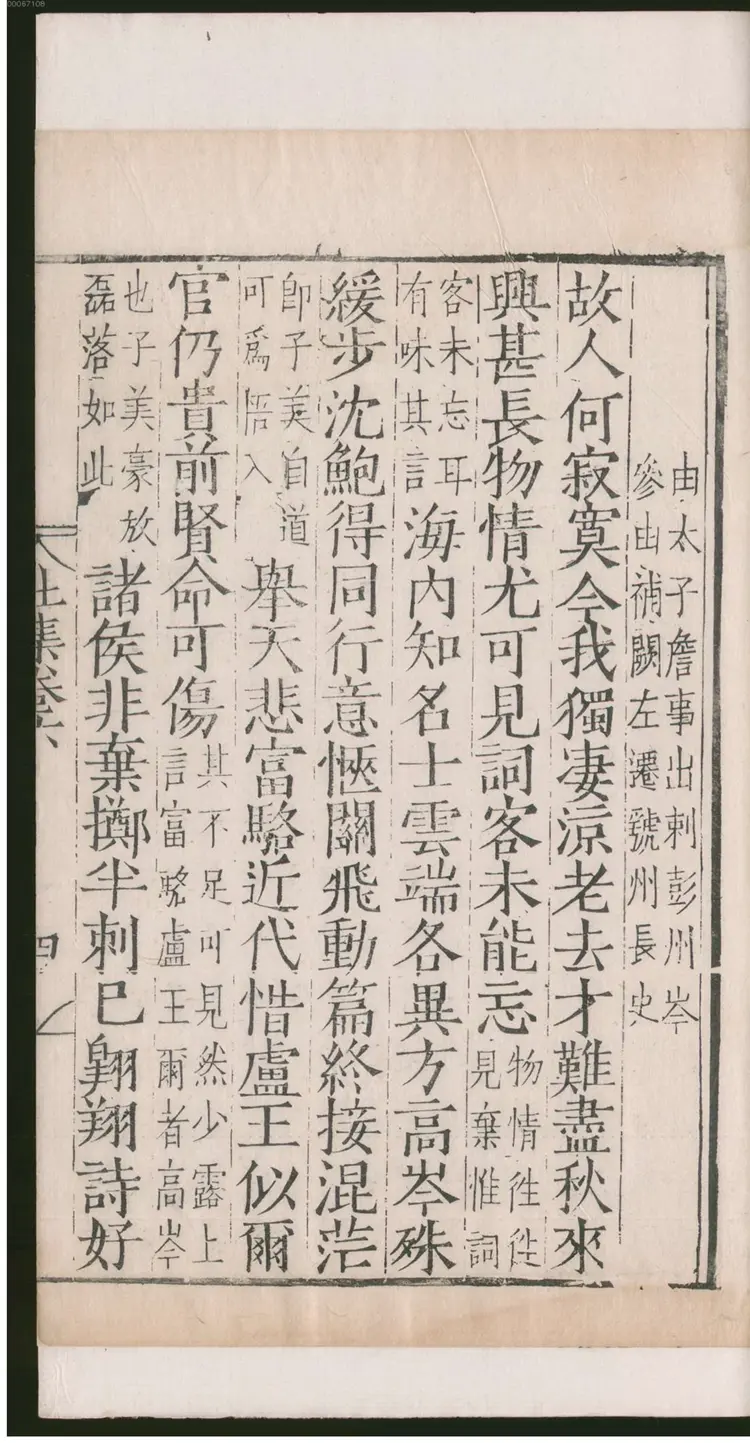 由太子詹事出刺彭州岑
參由補闕左遷虢州長史
故人何寂寞今我獨凄涼老去才難盡秋來
興甚長物情尤可見詞客未能忘物情徃徃
見棄惟詞
客未忘耳
有味其言海内知名士雲端各異方高岑殊
緩步沈鮑得同行意愜關飛動篇終接混茫
卽子美自道
可爲悟入舉天悲富駱近代惜盧王似爾
官仍貴前賢命可傷其不足可見然少露上
言富駱盧王爾者高岑
也子美豪放
磊落如此諸侯非棄擲半刺已翺翔詩好
杜集卷六
四
00067108